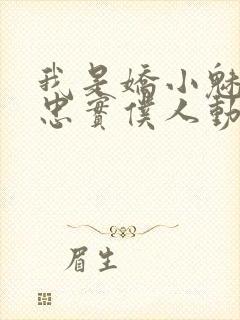 我是嬌小魅
忠實僕人動
眉生